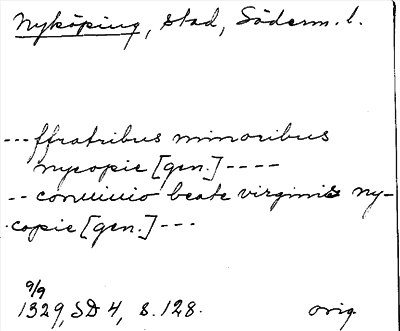 Nyköping, stad, Söderm. l.
--- ffratribus minoribus
nycopie [gen.] ----
-- conuiuio beate virginis ny-
copie [gen.] ---
9/9
1329, SD 4, s. 128. orig.